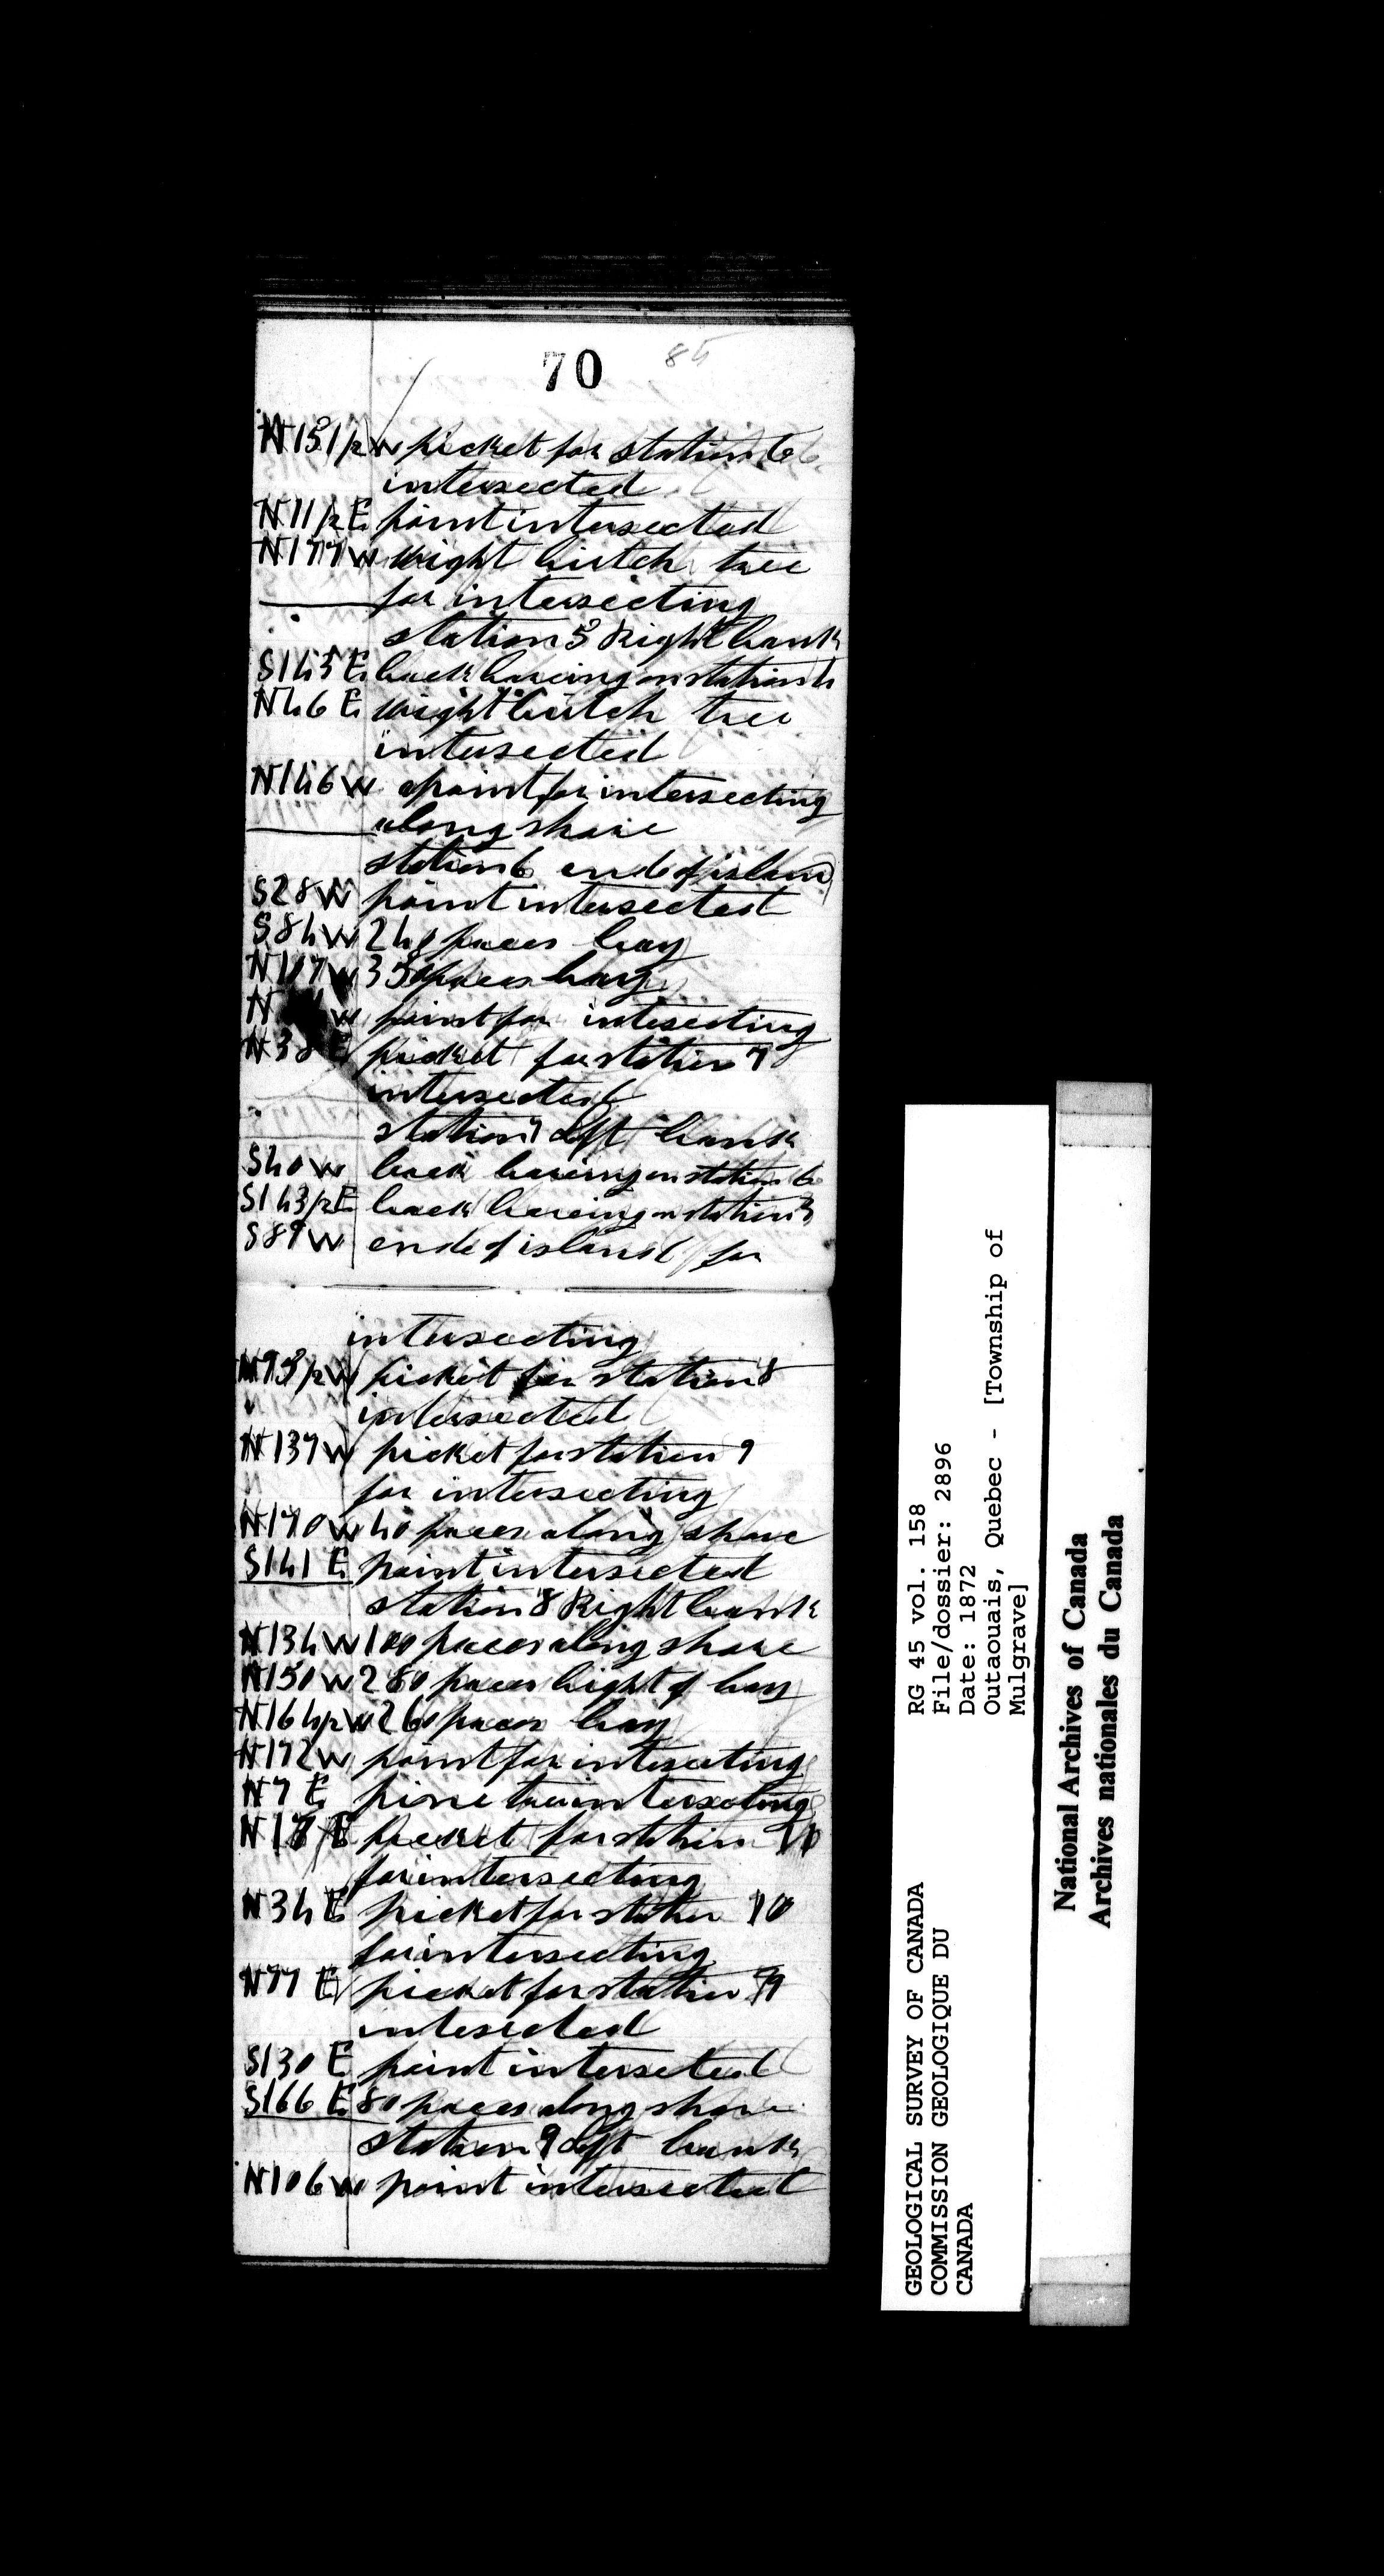 70
85
N151/2W picket for station 6
intersected
N11/2E point intersected
N177W bright birtch tree
for intersecting
station 5 Right bank
S145E back bearing on station 4
N46E bright birtch tree
intersected
N146W point for intersecting
along shore
station 6 end of island
S28W point intersected
S84W 240 paces bay
N107W 350 paces bay
point for intesecting
N38E picket for station 7
intersected
station 7 left bank
S40W back bearing on station 6
S143/2E back bearing on station 5
S89W end of island for
intersecting
N95/2W picket for station 8
intersected
N137W picket for station 9
for intersecting
N170W 40 paces along shore
S141E point intersected
station 8 Right bank
N134W 100 paces along shore
N150W 280 paces hight of bay
N164/2W 260 paces bay
N172W point for intesecting
N7E pine tree intersecting
picket for station
for intersecting
N34E picket for station 10
for intersecting
N77E picket for station 9
intesected
S130E point interseted
S166E 80 paces along shore
station 9 left bank
N106W point intersected
GEOLOGICAL SURVEY OF CANADA
COMMISSION GEOLOGIQUE DU
CANADA
RG 45 vol. 158
File/dossier: 2896
Date: 1872
Outaouais, Quebec - [Township of
Mulgrave]
National Archives of Canada
Archives nationales du Canada